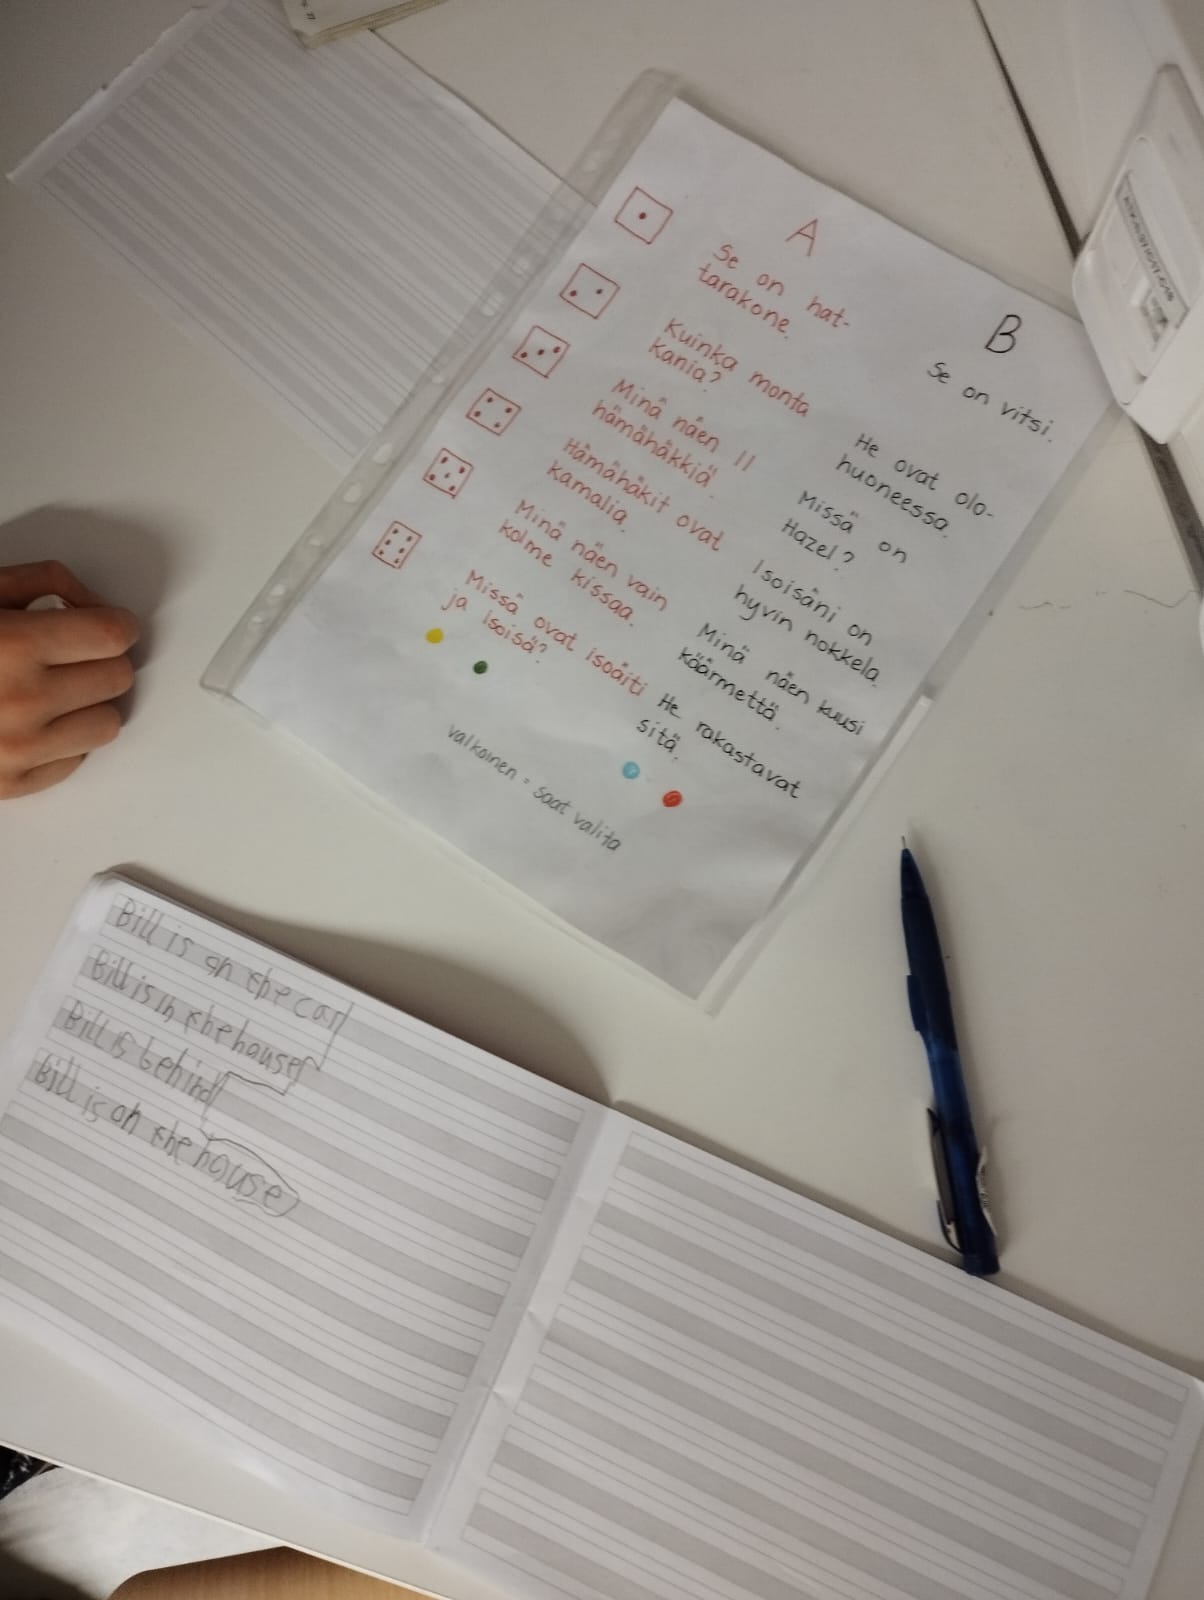 A
Se on hat-
tarakone.
Kuinka monta
kania?
Minä näen 11
hämähäkkiä.
Hämähäkit ovat
kamalia.
Minä näen vain
kolme kissaa.
Missä ovat isoäiti
ja isoisä?
B
Se on vitsi.
He ovat olo-
huoneessa.
Missä on
Hazel?
Isoisäni on
hyvin nokkela.
Minä näen kuusi
käärmettä.
He rakastavat
sitä.
valkoinen = saat valita
Bill is on the car
Bill is in the house
Bill is behind
Bill is on the house